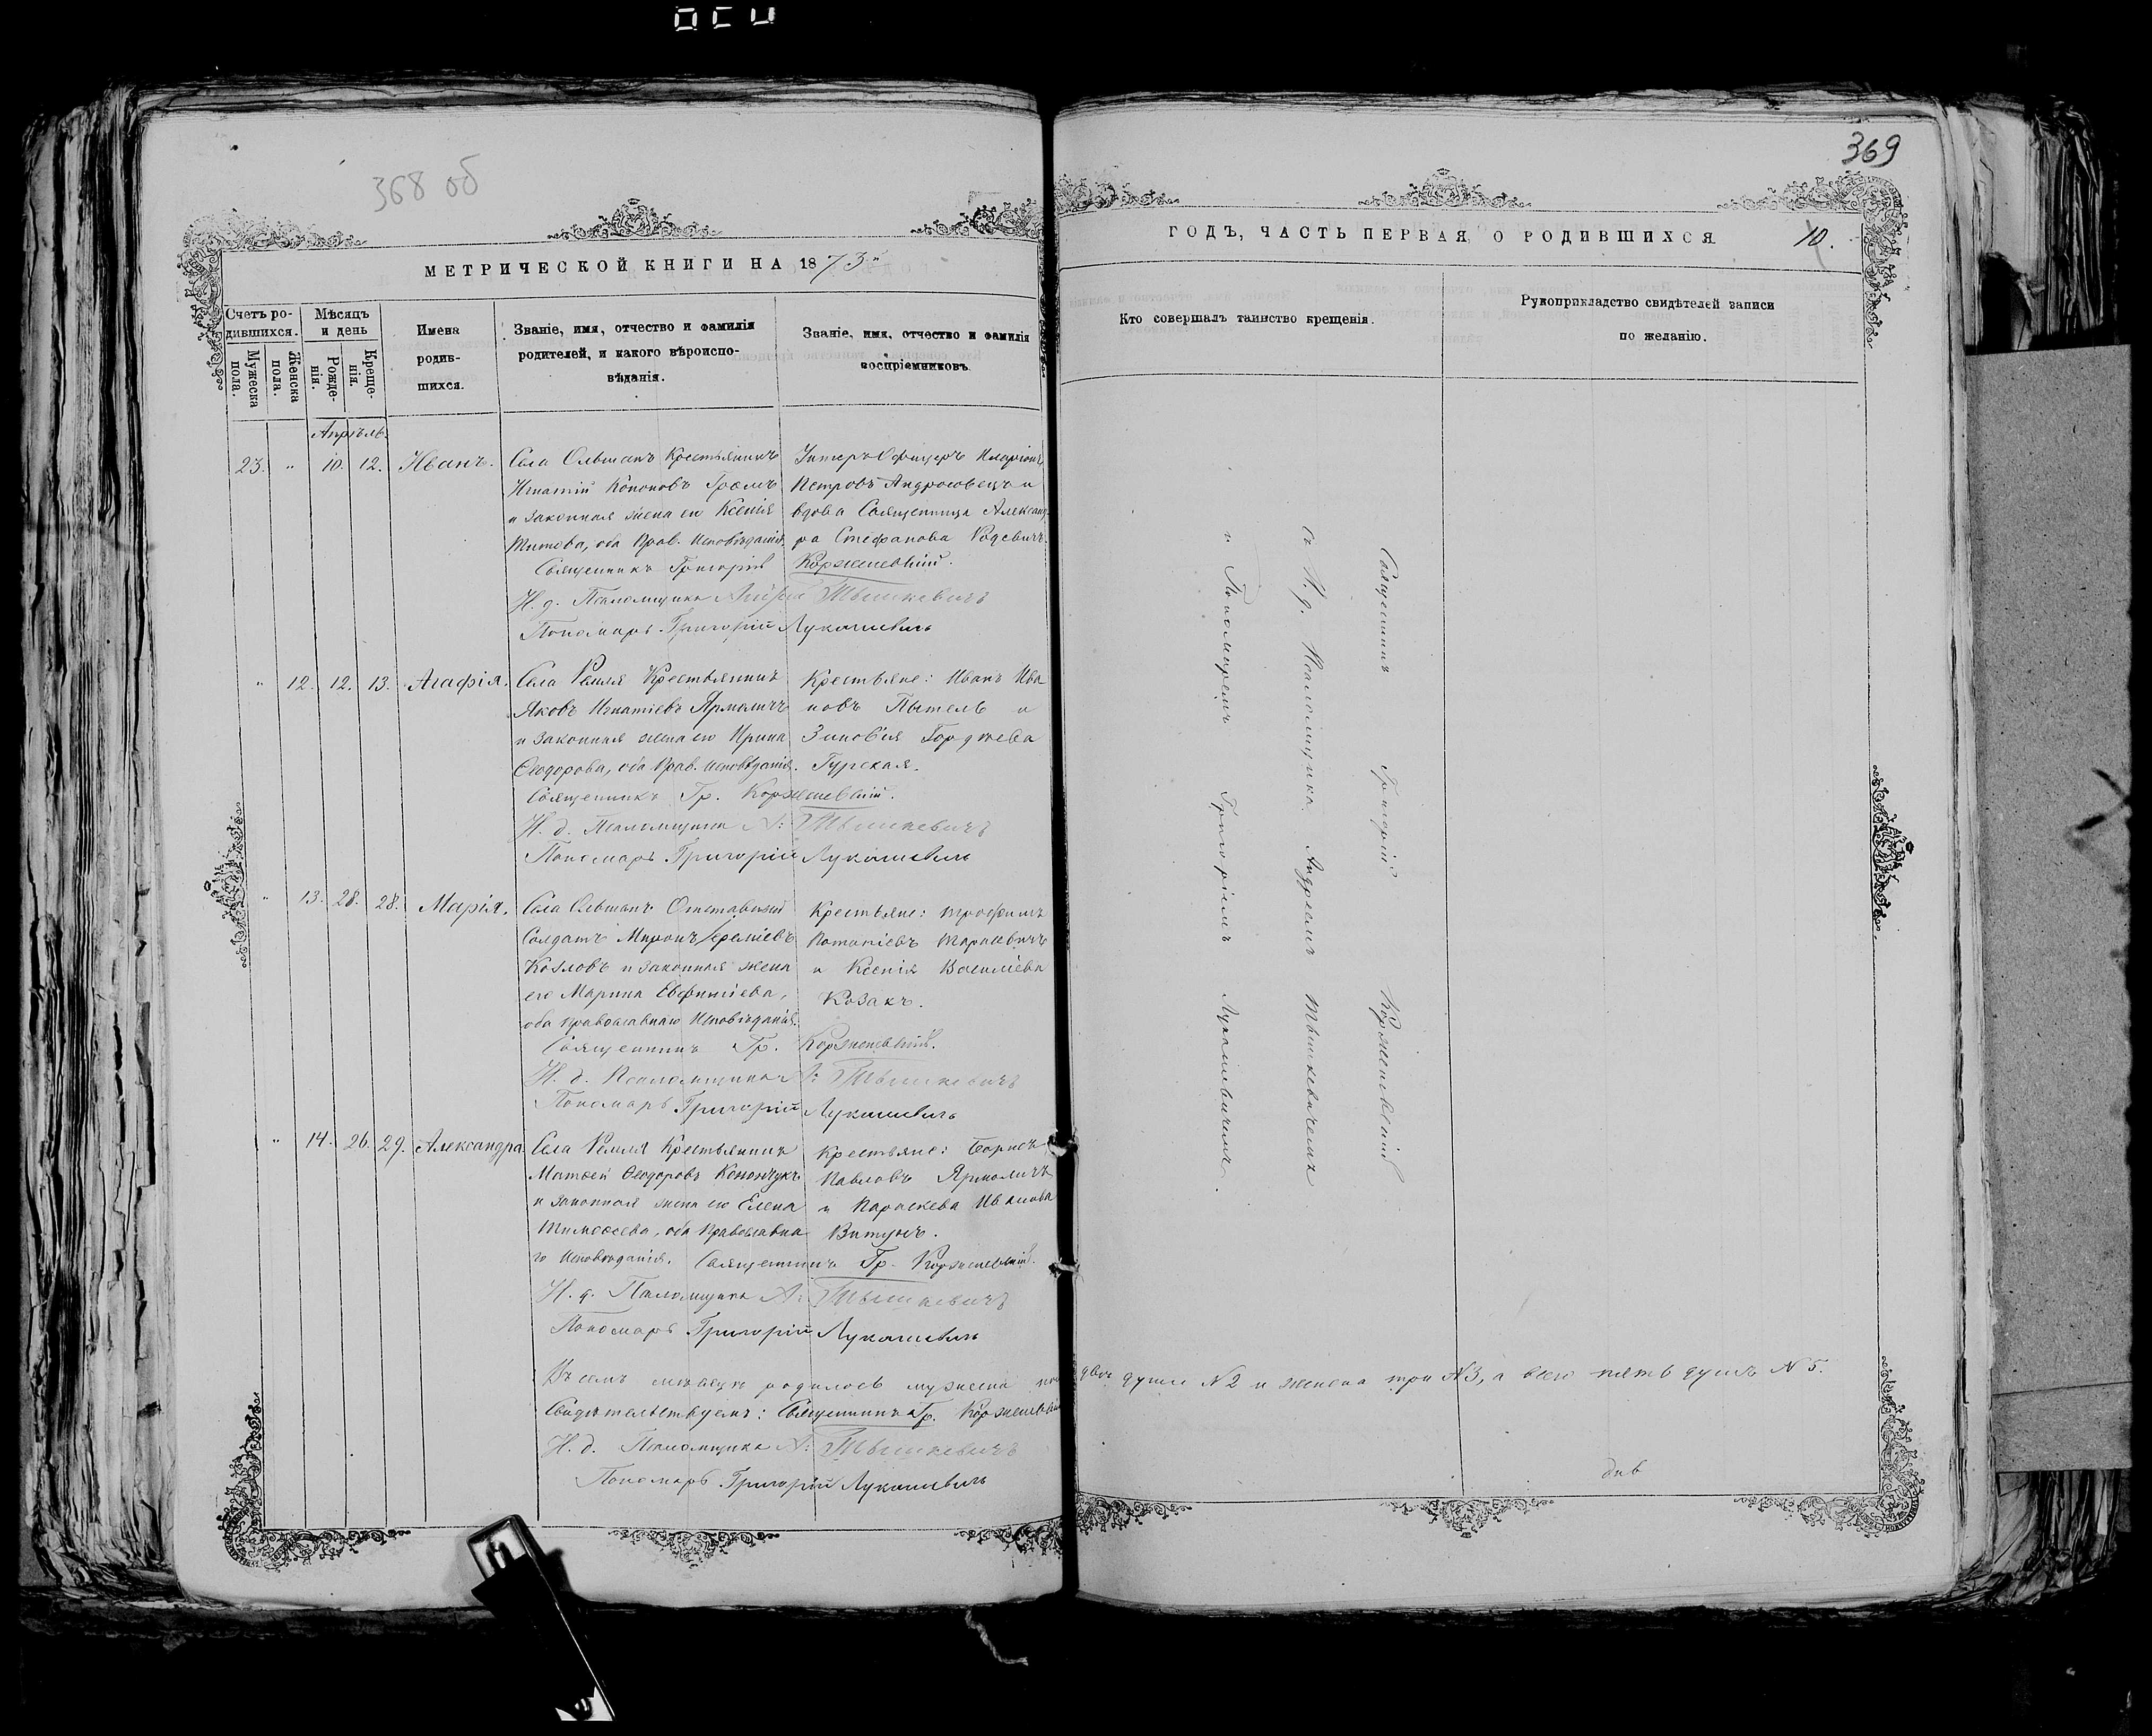 368 об
МЕТРИЧЕСКОЙ КНИГИ НА 1873
Счетъ ро-
дившихся.
Мужеска
пола.
Женска
пола.
Мѣсяцъ
и день
Рожде-
нія.
Креще-
нія.
Имена
родив-
шихся.
Званіе, имя, отчество и фамилія
родителей, и какого вѣроиспо-
вѣданія.
Званіе, имя, отчество и фамилія
воспріемниковъ.
Апрѣль.
23. " 10. 12. Иванъ.
Села Ольшанъ Крестьянинъ
Игнатій Кононовъ Громъ
и законная жена его Ксенія
Титова, оба Прав. Исповѣданія.
Унтеръ Офицеръ Иларіонъ
Петровъ Андросовецъ и
вдова Священница Александ-
ра Стефанова Родевичъ.
Священникъ Григорій Корженевскій.
И. д. Псаломщика Андрей Тышкевичъ
Пономарь Григорій Лукашевичъ
" 12. 12. 13. Агафія.
Села Ремля Крестьянинъ
Яковъ Игнатіевъ Ярмоличъ
и законная жена его Ирина
Ѳеодорова, оба Прав. исповѣданія.
Крестьяне: Иванъ Ива
новъ Пытель и
Зиновія Гордѣева
Гурская.
Священникъ Гр. Корженевскій.
И. д. Псаломщика А: Тышкевичъ
Пономарь Григорій Лукашевичъ
" 13. 28. 28. Марія.
Села Ольшанъ Отставный
Солдатъ Миронъ Іереміевъ
Козловъ и законная жена
его Марина Евфиміева,
оба православнаго Исповѣданія.
Крестьяне: Трофимъ
Потапіевъ Тарасевичъ
и Ксенія Василіева
Козакъ.
Священникъ Гр. Корженевскій.
И. д. Псаломщика А: Тышкевичъ
Пономарь Григорій Лукашевичъ
" 14. 26. 29. Александра
Села Ремля Крестьянинъ
Матѳей Ѳеодоровъ Конончукъ
и законная жена его Елена
Тимоѳеева, оба Православна
го Исповѣданія.
Крестьяне: Борисъ
Павловъ Ярмоличъ
и Параскева Иванова
Витунъ.
Священникъ Гр. Корженевскій.
И. д. Псаломщика А: Тышкевичъ
Пономарь Григорій Лукашевичъ
Въ семъ мѣсяцѣ родилось мужеска по двѣ души N 2 и женска три N 3, а всего пять душъ N 5.
Свидѣтельствуемъ: Священникъ Гр. Корженевскій
И. д. Псаломщика А: Тышкевичъ
Пономарь Григорій Лукашевичъ
369
ГОДЪ, ЧАСТЬ ПЕРВАЯ, О РОДИВШИХСЯ.
10.
Кто совершалъ таинство крещенія.
Рукоприкладство свидѣтелей записи
по желанію.
Священникъ Григорій Корженевскій
съ И. д. Псаломщика Андреемъ Тышкевичемъ
и Пономаремъ Григоріемъ Лукашевичемъ.